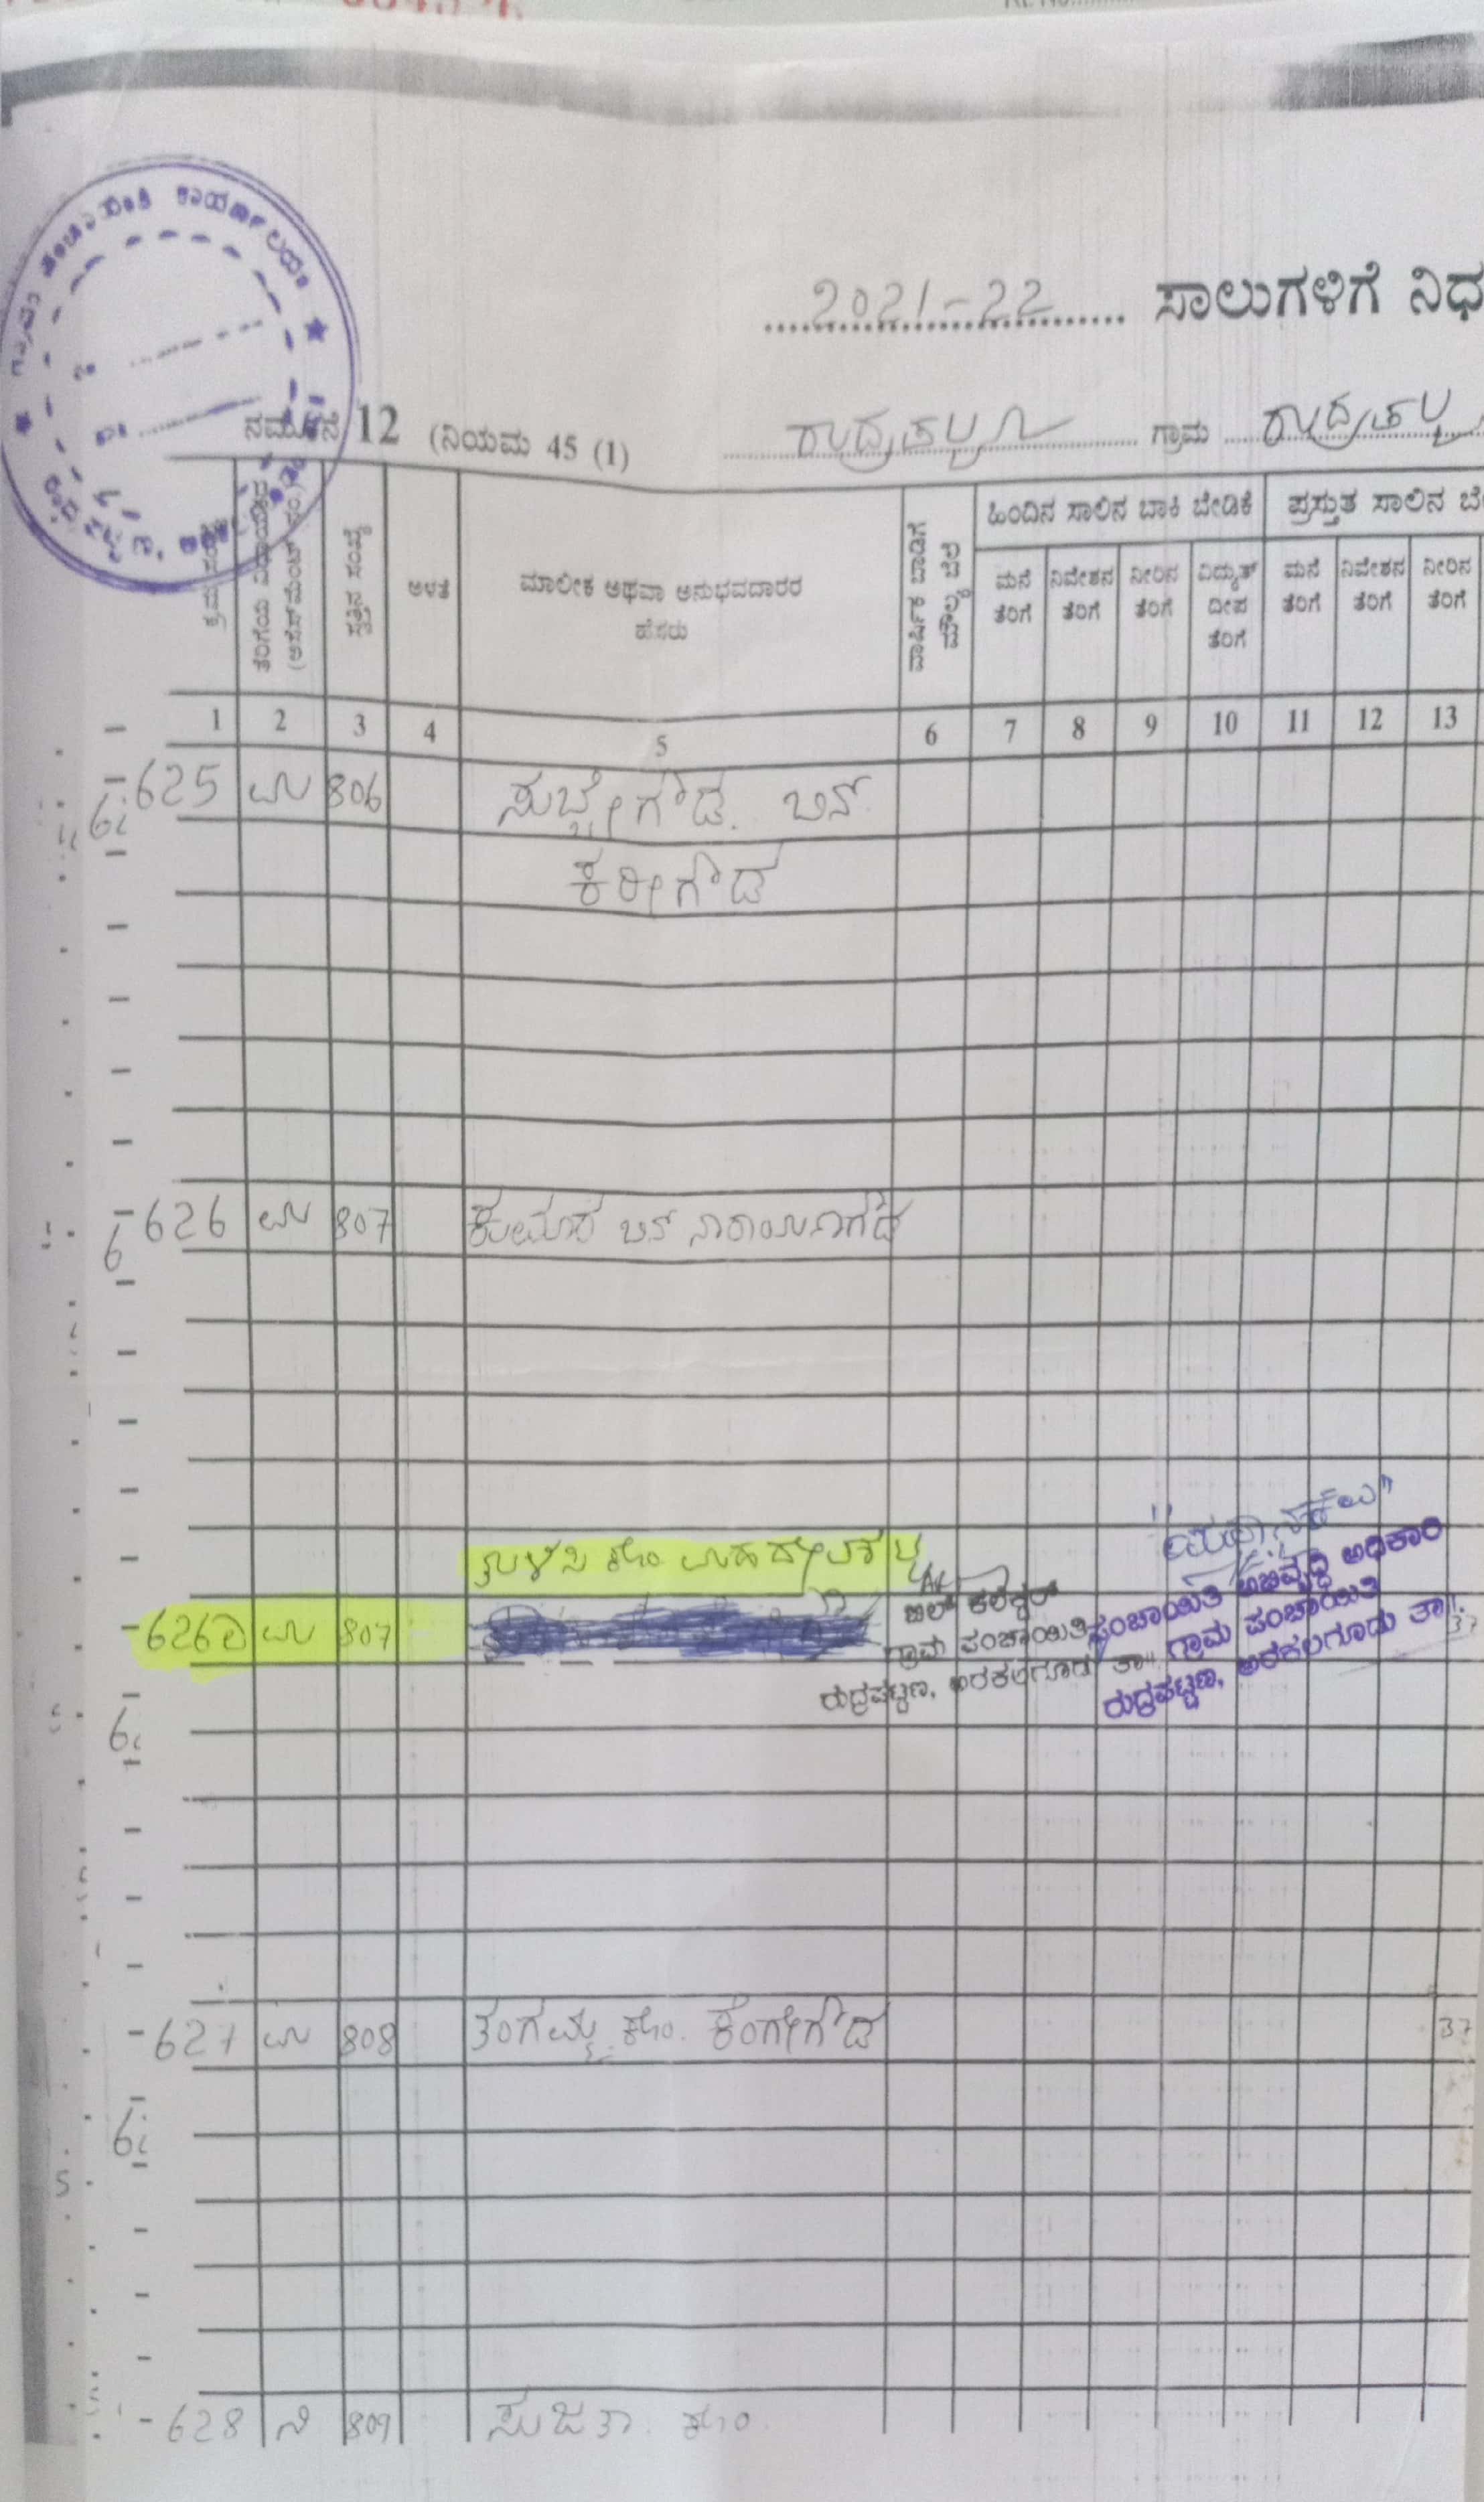 2021-22 ಸಾಲುಗಳಿಗೆ
ನಮೂನೆ 12 (ನಿಯಮ 45 (1)
ಗ್ರಾಮ
ಕ್ರಮ ಸಂಖ್ಯೆ
ಸ್ವತ್ತಿನ ಸಂಖ್ಯೆ
ಅಳತೆ
ಮಾಲೀಕ ಅಥವಾ ಅನುಭವದಾರರ
ಹೆಸರು
ವಾರ್ಷಿಕ ಬಾಡಿಗೆ
ಮೌಲ್ಯ ಬೆಲೆ
ಹಿಂದಿನ ಸಾಲಿನ ಬಾಕಿ ಬೇಡಿಕೆ
ಪ್ರಸ್ತುತ ಸಾಲಿನ
ಮನೆ ತೆರಿಗೆ
ನಿವೇಶನ ತೆರಿಗೆ
ನೀರಿನ ತೆರಿಗೆ
ವಿದ್ಯುತ್ ದೀಪ ತೆರಿಗೆ
ಮನೆ ತೆರಿಗೆ
ನಿವೇಶನ ತೆರಿಗೆ
ನೀರಿನ ತೆರಿಗೆ
1 2 3 4 5 6 7 8 9 10 11 12 13
625 ಮ 806 ಸುಬ್ಬೇಗೌಡ ಬಿನ್
ಕರೀಗೌಡ
626 ಮ 807 ಕುಮಾರ ಬಿನ್ ನಾರಾಯಣಗೌಡ
ತುಳಸಿ ಕೋಂ
626ಎ ಮ 807
ಬಿಲ್ ಕಲೆಕ್ಟರ್
ಗ್ರಾಮ ಪಂಚಾಯಿತಿ
ರುದ್ರಪಟ್ಟಣ, ಅರಕಲಗೂಡು ತಾ॥
ಪಂಚಾಯಿತಿ ಅಭಿವೃದ್ಧಿ ಅಧಿಕಾರಿ
ಗ್ರಾಮ ಪಂಚಾಯಿತಿ
ರುದ್ರಪಟ್ಟಣ, ಅರಕಲಗೂಡು ತಾ॥
37
627 ಮ 808 ತಂಗಮ್ಮ ಕೋಂ ಕೆಂಗೇಗೌಡ 37
628 ನಿ 809 ಸುಜಾತಾ ಕೋಂ